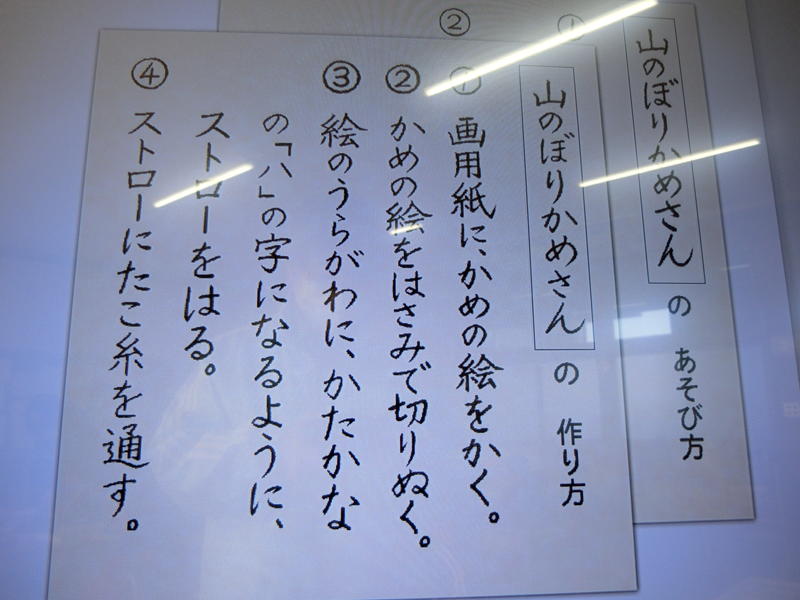 山のぼりかめさん の あそび方
①
②
山のぼりかめさん の 作り方
① 画用紙に、かめの絵をかく。
② かめの絵をはさみで切りぬく。
③ 絵のうらがわに、かたかな
の「ハ」の字になるように、
ストローをはる。
④ ストローにたこ糸を通す。